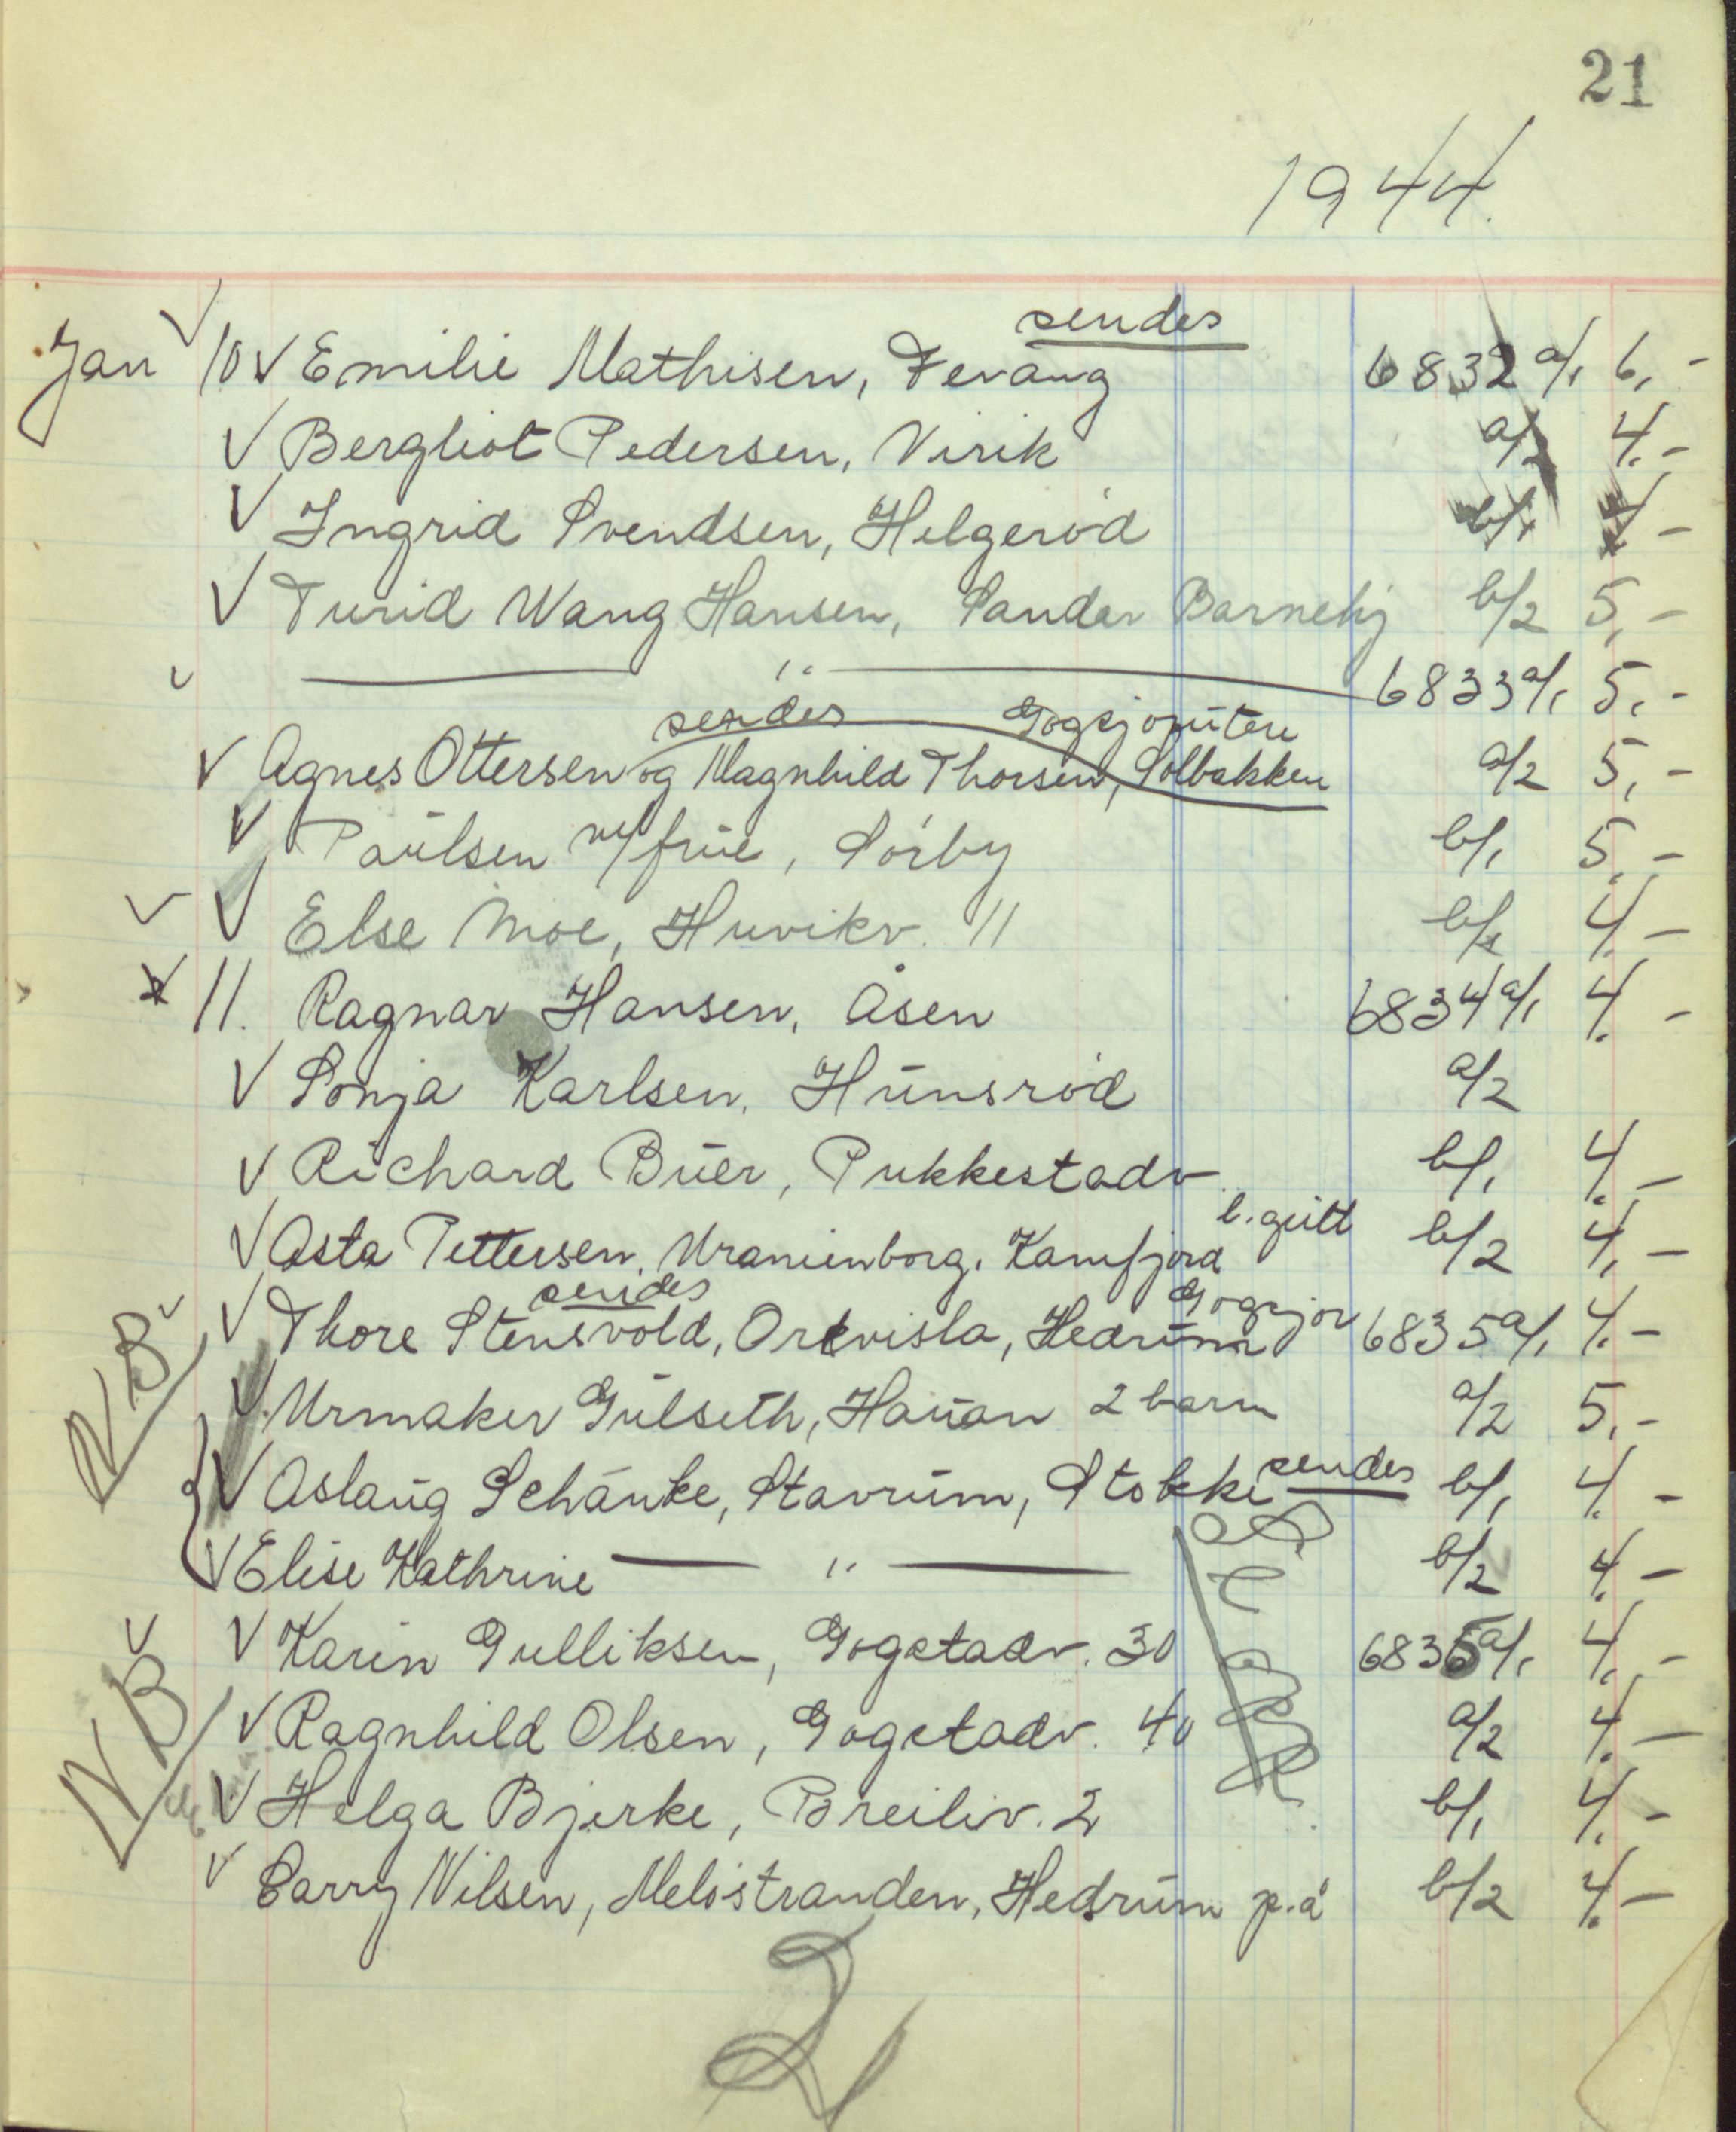 21
1944.
sendes
Jan 10 V Emilie Mathisen, Fevang 6832 a/1 6,-
V Bergliot Pedersen, Virik a/2 4.-
V Ingrid Svendsen, Helgerød b/1 4 -
V Turid Wang Hansen, Sandar Barnehj b/2 5,-
V — " — 6833 a/1 5.-
sendes
V Agnes Ottersen og Magnhild Thorsen, Solbakken a/2 5,-
V Paulsen m/frue, Sørby b/1 5.-
V V Else Moe, Huvikv. 11 b/2 4.-
V 11. Ragnar Hansen, Åsen 6834 a/1 4.-
V Sonja Karlsen, Hunsrød a/2
V Richard Buer, Pukkestadv. b/1 4.-
V Asta Pettersen, Uranienborg, Kamfjord b/2 4,-
sendes
V Thore Stensvold, Orevisla, Hedrum 6835 a/1 4.-
NB
V Urmaker Gulseth, Hauan 2 barn a/2 5.-
V Aslaug Schänke, Stavrum, Stokke sendes b/1 4.-
V Elise Kathrine — " — b/2 4.-
V V Karin Gulliksen, Gogstadv. 30 6836 a/1 4.-
NB
V Ragnhild Olsen, Gogstadv. 40 a/2 4.-
V Helga Bjerke, Breiliv. 2 b/1 4.-
V Carry Nilsen, Meløstranden, Hedrum p.å b/2 4.-